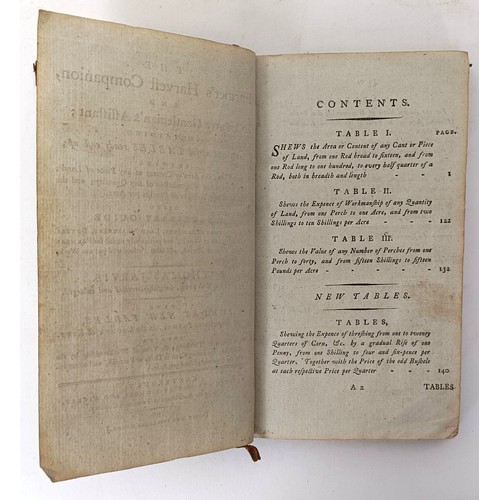 CONTENTS.
TABLE I. PAGE.
SHEWS the Area or Content of any Cant or Piece
of Land, from one Rod broad to sixteen, and from
one Rod long to one hundred, to every half quarter of a
Rod, both in breadth and length - - 1
TABLE II.
Shews the Expence of Workmanship of any Quantity
of Land, from one Perch to one Acre, and from two
Shillings to ten Shillings per Acre - - - 122
TABLE III.
Shews the Value of any Number of Perches from one
Perch to forty, and from fifteen Shillings to fifteen
Pounds per Acre - - - - - 132
NEW TABLES.
TABLES,
Shewing the Expence of threshing from one to twenty
Quarters of Corn, &c. by a gradual Rise of one
Penny, from one Shilling to four and six-pence per
Quarter. Together with the Price of the odd Bushels
at each respective Price per Quarter - - - 140
A 2 TABLES
Farmer's Harvest Companion,
Gentleman's Assistant;